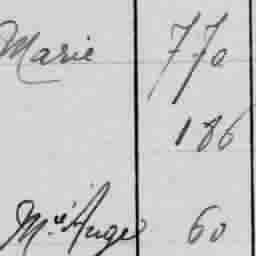 Marie 770
186
Mie Ange 60